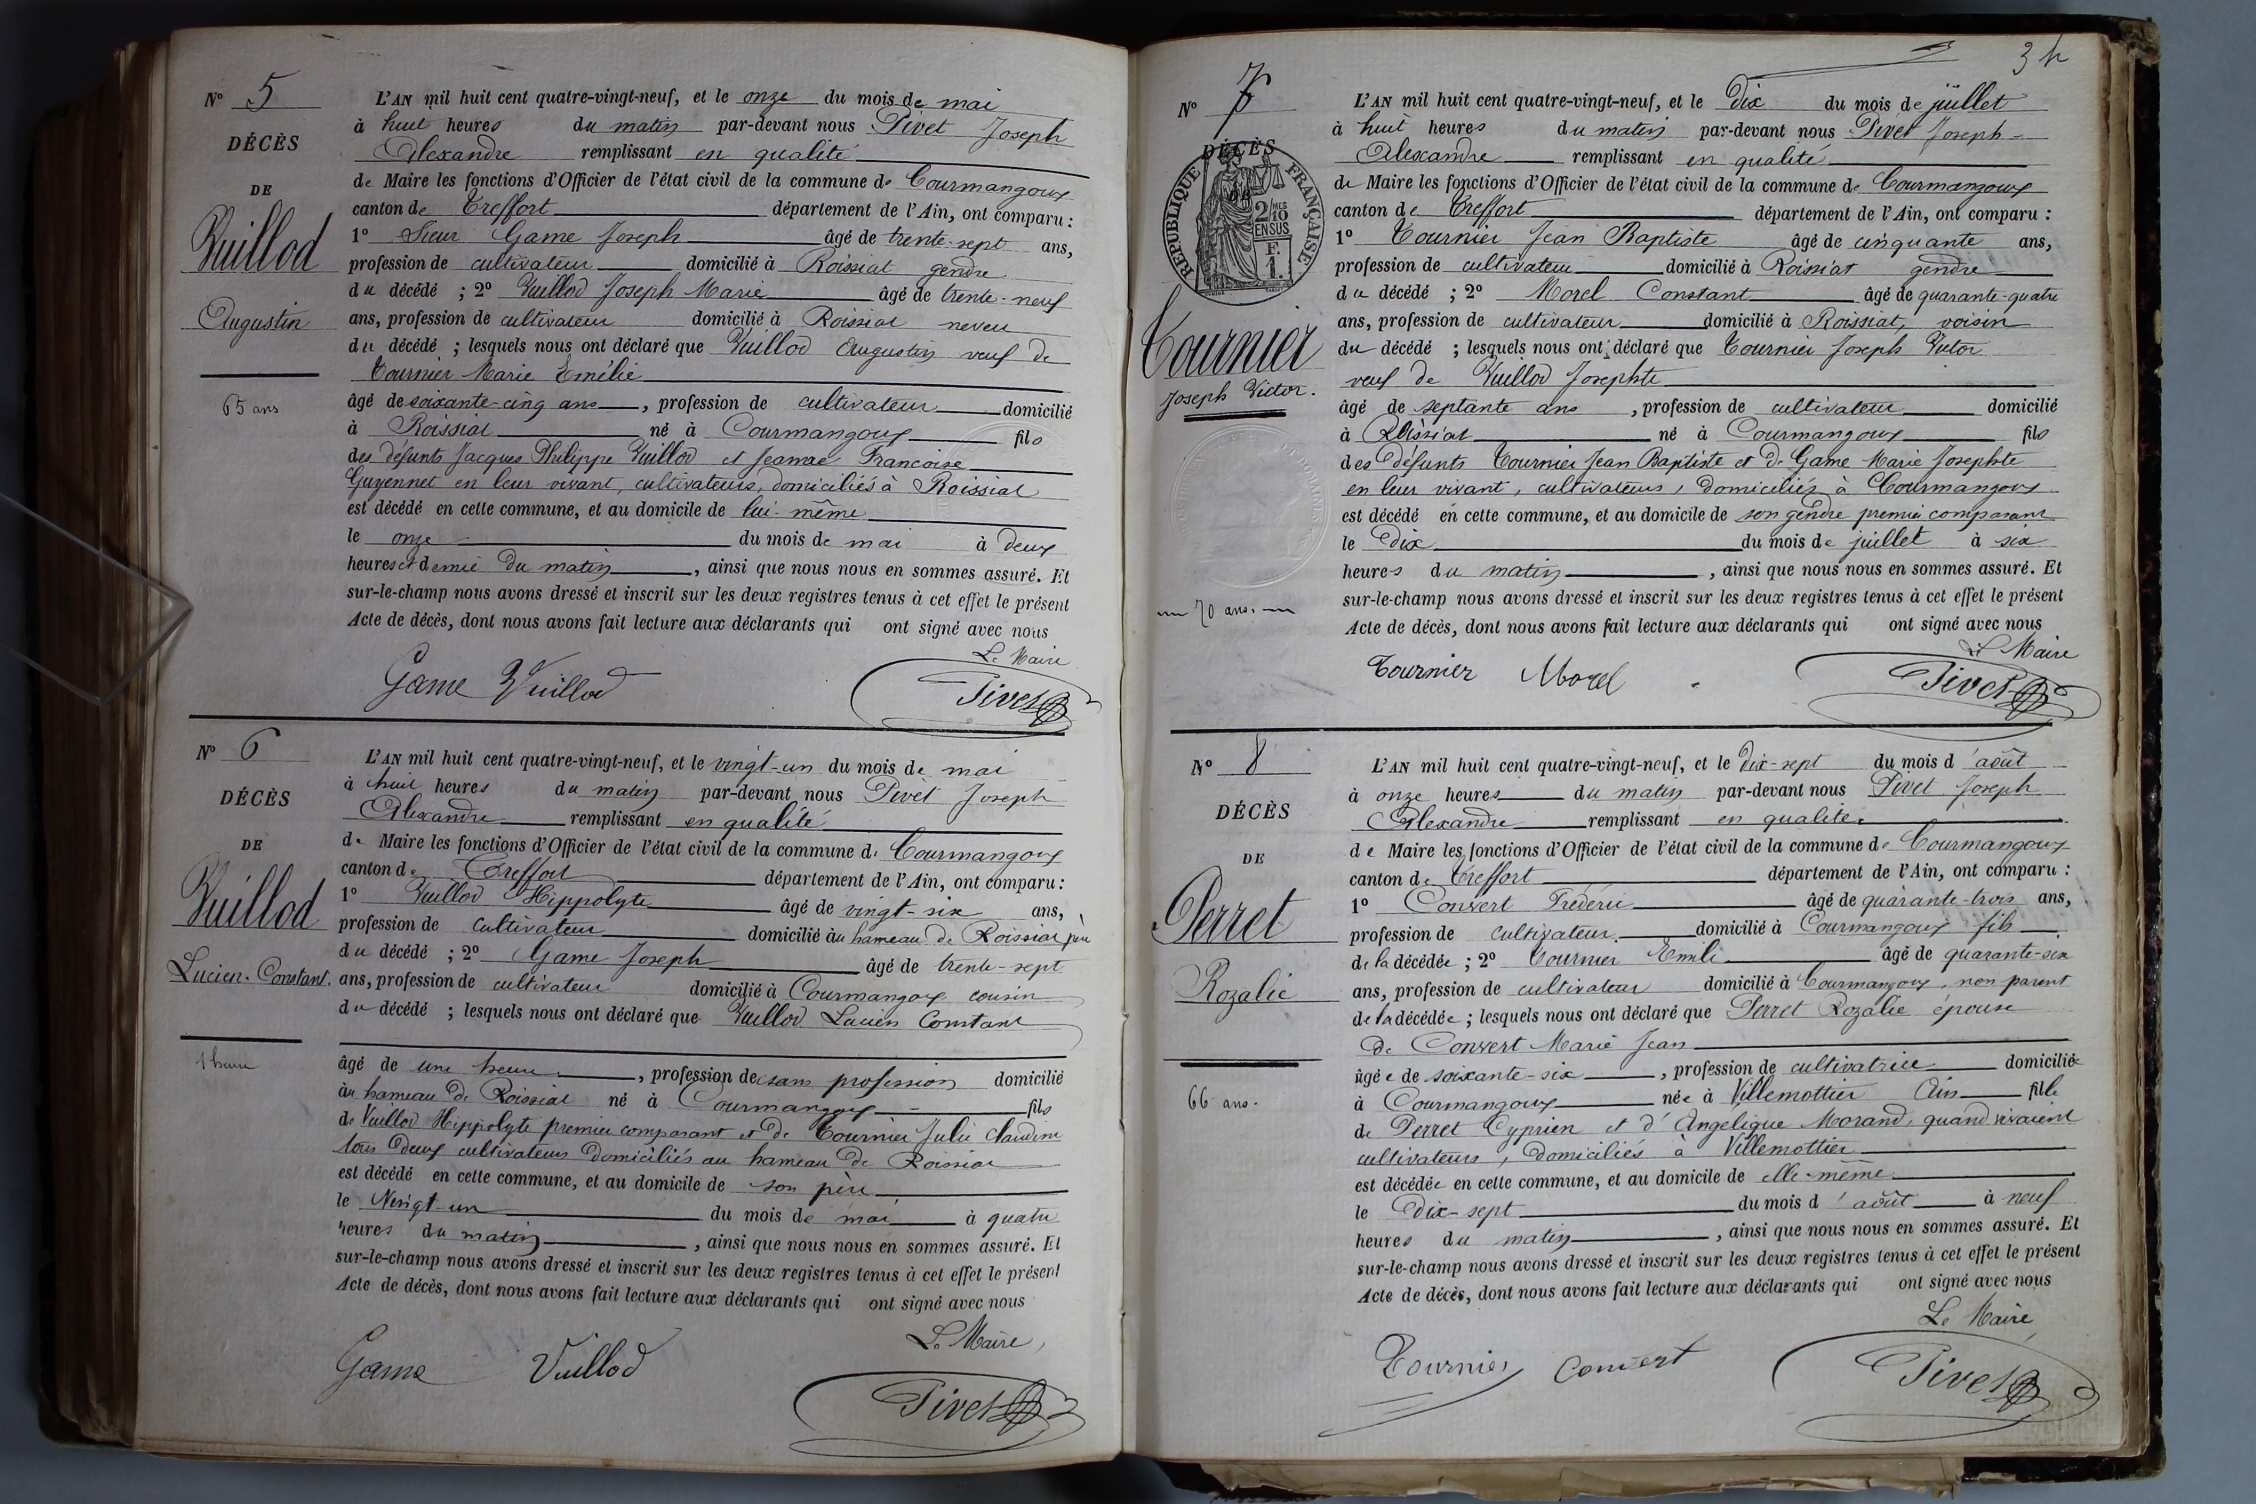 N° 5
DÉCÈS
DE
Vuillod
Augustin
65 ans
L'AN mil huit cent quatre-vingt-neuf, et le onze du mois de mai
à huit heures du matin par-devant nous Pivet Joseph
Alexandre remplissant en qualité
de Maire les fonctions d'Officier de l'état civil de la commune de Courmangoux
canton de Treffort département de l'Ain, ont comparu :
1° Sieur Game Joseph âgé de trente-sept ans,
profession de cultivateur domicilié à Roissiat gendre
du décédé ; 2° Vuillod Joseph Marie âgé de trente-neuf
ans, profession de cultivateur domicilié à Roissiat neveu
du décédé ; lesquels nous ont déclaré que Vuillod Augustin veuf de
Tournier Marie Emélie
âgé de soixante-cinq ans, profession de cultivateur domicilié
à Roissiat né à Courmangoux fils
des défunts Jacques Philippe Vuillod et Jeanne Françoise
Guyennet en leur vivant, cultivateurs, domiciliés à Roissiat
est décédé en cette commune, et au domicile de lui-même
le onze du mois de mai à deux
heures et demie du matin, ainsi que nous nous en sommes assuré. Et
sur-le-champ nous avons dressé et inscrit sur les deux registres tenus à cet effet le présent
Acte de décès, dont nous avons fait lecture aux déclarants qui ont signé avec nous
Le Maire
Game Vuillod Pivet
N° 6
DÉCÈS
DE
Vuillod
Lucien-Constant.
1 heure
L'AN mil huit cent quatre-vingt-neuf, et le vingt-un du mois de mai
à huit heures du matin par-devant nous Pivet Joseph
Alexandre remplissant en qualité
de Maire les fonctions d'Officier de l'état civil de la commune de Courmangoux
canton de Treffort département de l'Ain, ont comparu :
1° Vuillod Hippolyte âgé de vingt-six ans,
profession de cultivateur domicilié au hameau de Roissiat père
du décédé ; 2° Game Joseph âgé de trente-sept
ans, profession de cultivateur domicilié à Courmangoux cousin
du décédé ; lesquels nous ont déclaré que Vuillod Lucien Constant
âgé de une heure, profession de sans profession domicilié
au hameau de Roissiat né à Courmangoux fils
de Vuillod Hippolyte premier comparant et de Tournier Julie Claudine
tous deux cultivateurs domiciliés au hameau de Roissiat
est décédé en cette commune, et au domicile de son père
le Vingt-un du mois de mai à quatre
heures du matin, ainsi que nous nous en sommes assuré. Et
sur-le-champ nous avons dressé et inscrit sur les deux registres tenus à cet effet le présent
Acte de décès, dont nous avons fait lecture aux déclarants qui ont signé avec nous
Le Maire,
Game Vuillod Pivet
34
N° 7
DÉCÈS
RÉPUBLIQUE FRANÇAISE
2/10 MES
EN SUS
F.
1.
Tournier
Joseph Victor.
70 ans.
L'AN mil huit cent quatre-vingt-neuf, et le Dix du mois de juillet
à huit heures du matin par-devant nous Pivet Joseph-
Alexandre remplissant en qualité
de Maire les fonctions d'Officier de l'état civil de la commune de Courmangoux
canton de Treffort département de l'Ain, ont comparu :
1° Tournier Jean Baptiste âgé de cinquante ans,
profession de cultivateur domicilié à Roissiat gendre
du décédé ; 2° Morel Constant âgé de quarante-quatre
ans, profession de cultivateur domicilié à Roissiat, voisin
du décédé ; lesquels nous ont déclaré que Tournier Joseph Victor
veuf de Vuillod Josephte
âgé de septante ans, profession de cultivateur domicilié
à Roissiat né à Courmangoux fils
des défunts Tournier Jean Baptiste et de Game Marie Josephte
en leur vivant, cultivateurs, domiciliés à Courmangoux
est décédé en cette commune, et au domicile de son gendre premier comparant
le Dix du mois de juillet à six
heures du matin, ainsi que nous nous en sommes assuré. Et
sur-le-champ nous avons dressé et inscrit sur les deux registres tenus à cet effet le présent
Acte de décès, dont nous avons fait lecture aux déclarants qui ont signé avec nous
Le Maire
Tournier Morel Pivet
N° 8
DÉCÈS
DE
Perret
Rozalie
66 ans.
L'AN mil huit cent quatre-vingt-neuf, et le Dix-sept du mois d'août
à onze heures du matin par-devant nous Pivet Joseph
Alexandre remplissant en qualité
de Maire les fonctions d'Officier de l'état civil de la commune de Courmangoux
canton de Treffort département de l'Ain, ont comparu :
1° Convert Fréderic âgé de quarante-trois ans,
profession de cultivateur. domicilié à Courmangoux fils
de la décédée ; 2° Tournier Emile âgé de quarante-six
ans, profession de cultivateur domicilié à Courmangoux, non parent
de la décédée ; lesquels nous ont déclaré que Perret Rozalie épouse
de Convert Marie Jean
âgée de soixante-six, profession de cultivatrice domiciliée
à Courmangoux née à Villemottier Ain fille
de Perret Cyprien et d'Angélique Morand, quand vivaient
cultivateurs, domiciliés à Villemottier
est décédée en cette commune, et au domicile de elle-même
le Dix-sept du mois d'août à neuf
heures du matin, ainsi que nous nous en sommes assuré. Et
sur-le-champ nous avons dressé et inscrit sur les deux registres tenus à cet effet le présent
Acte de décès, dont nous avons fait lecture aux déclarants qui ont signé avec nous
Le Maire
Tournier Convert Pivet